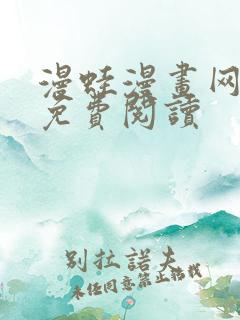 漫蛙漫畫网
免費閱讀
别拉諾夫
未经同意禁止轉載